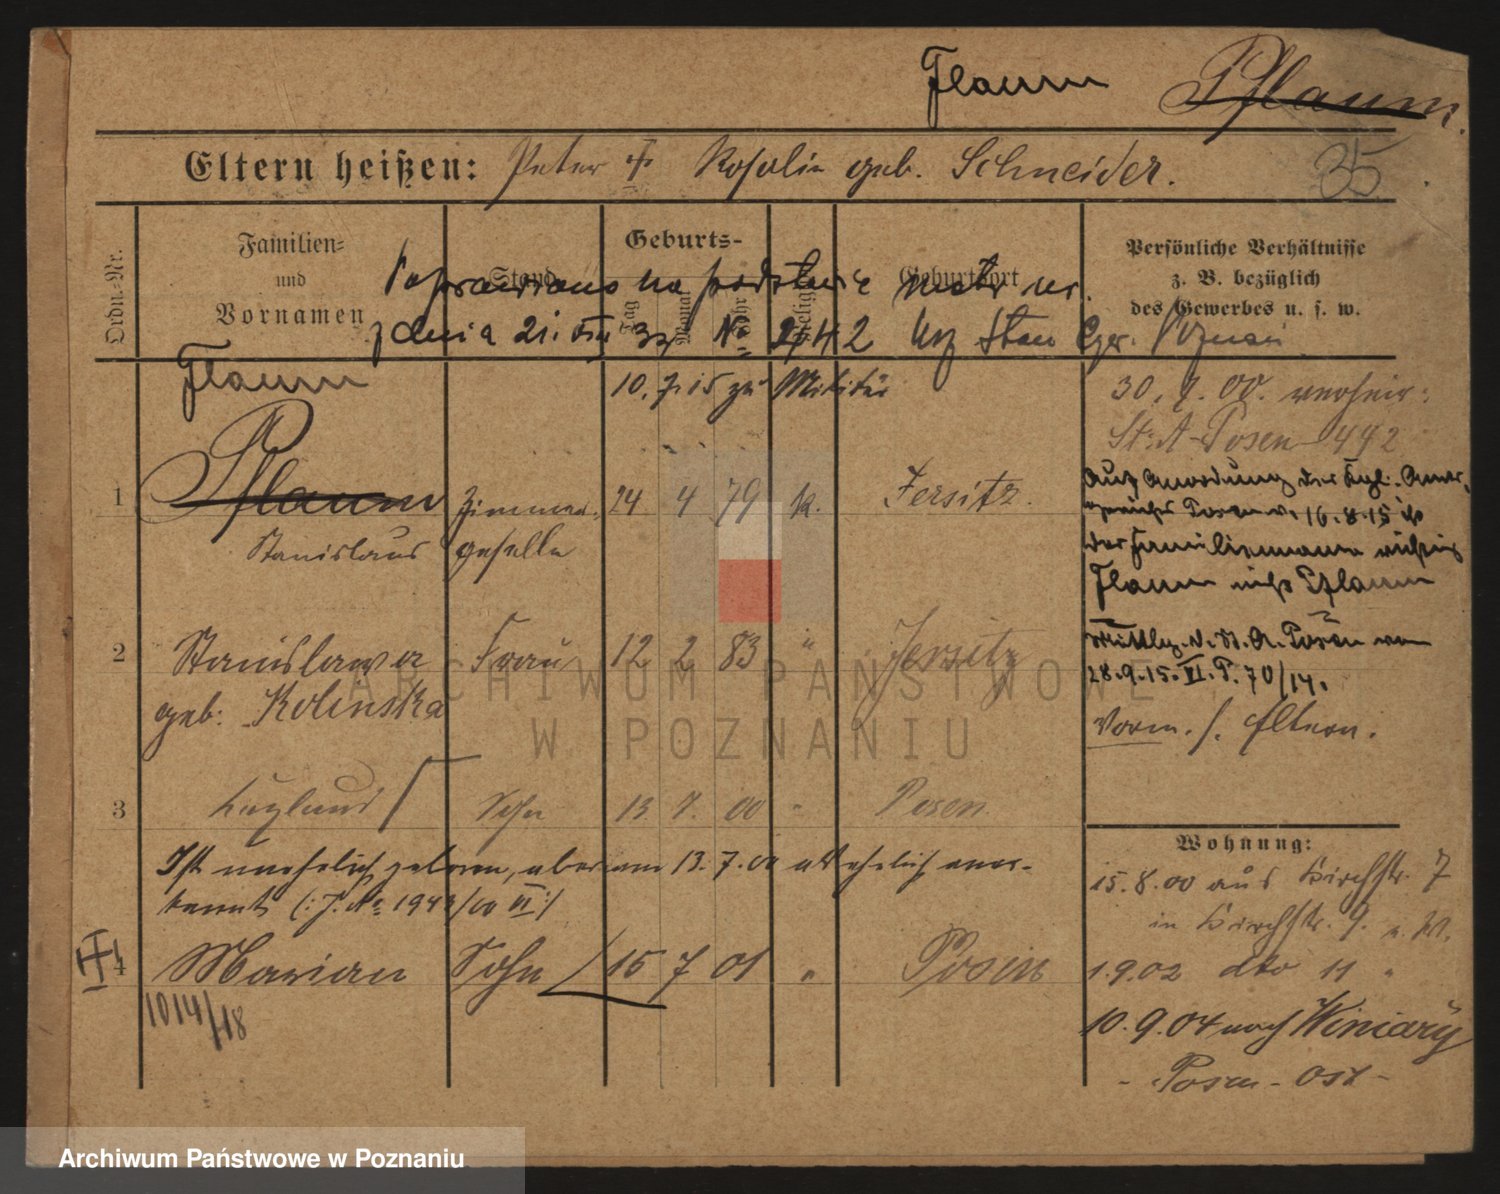 Flaum Pflaum.
Eltern heißen: Peter ✝ Rosalie geb. Schneider.
35
Ordn.-Nr. Familien- und Vornamen Stand Geburts- Tag Monat Jahr Relig. Geburtsort Persönliche Verhältnisse z. B. bezüglich des Gewerbes u. s. w.
Poprawiono na podstawie metr. ur.
z dnia 21. VIII 33 No 2742 Urz Stan Cyw. Poznań
Flaum 10.7.15 zu Militär
30.7.00. verheir:
St. A. Posen 442
1 Pflaum Zimmer- 24 4 79 k. Jersitz.
Stanislaus geselle
Auf Anordnung des Kgl. Amts-
gerichts Posen v. 16.8.15 ist
der Familienname richtig
Flaum nicht Pflaum
Mittlg. d. St. A. Posen vom
28.9.15. VI. P. 70/14.
Vorm. s. Eltern.
2 Stanislawa Frau 12 2 83 " Jersitz
geb: Kolinska
3 Sohn 13. 7. 00 " Posen.
Ist unehelich geboren, aber am 13.7.00 als ehelich aner-
kannt (: J. No 1943/00 II :)
4 Marian Sohn 15 7 01 " Posen
1014/18
Wohnung:
15.8.00 aus Kirchstr. 7
in Kirchstr. 9. n. W.
1.9.02 dto 11 "
10.9.04 nach Winiary
- Posen - Ost -
ARCHIWUM PAŃSTWOWE
W POZNANIU
Archiwum Państwowe w Poznaniu